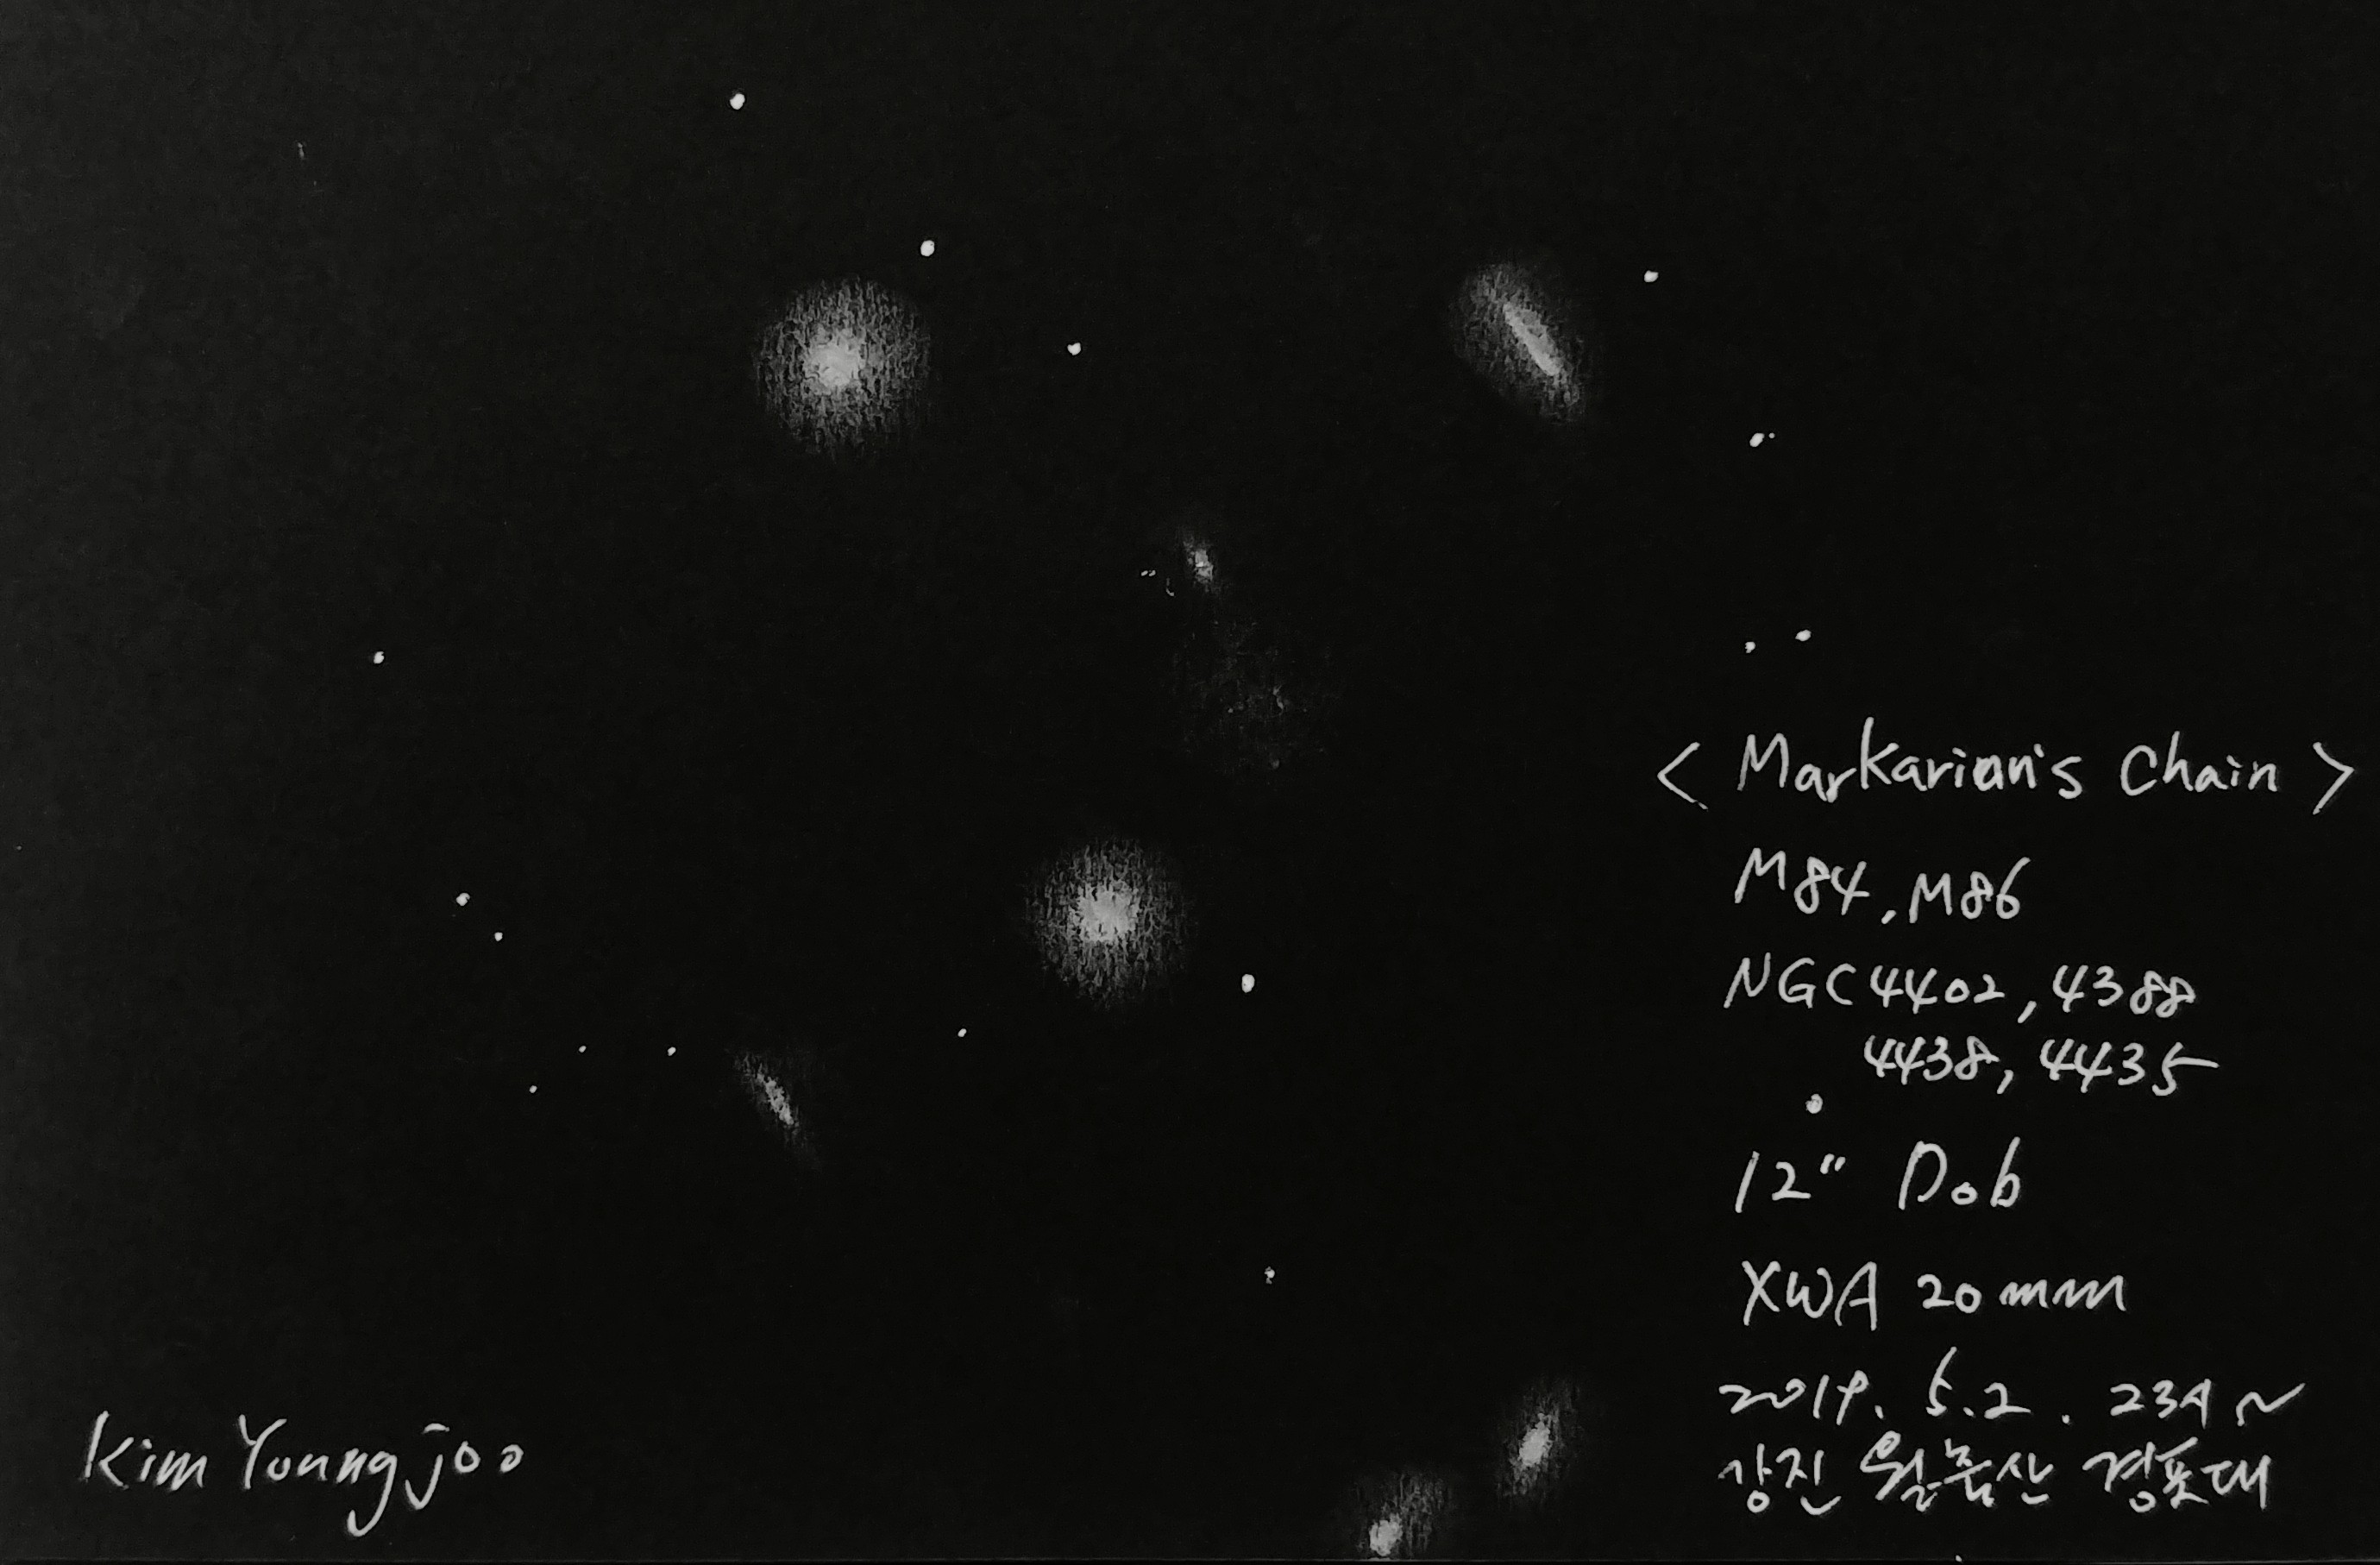 < Markarian's Chain >
M84, M86
NGC 4402, 4388
4438, 4435
12" Dob
XWA 20mm
2019. 5.2. 23시~
강진 월출산 경포대
Kim Youngjoo